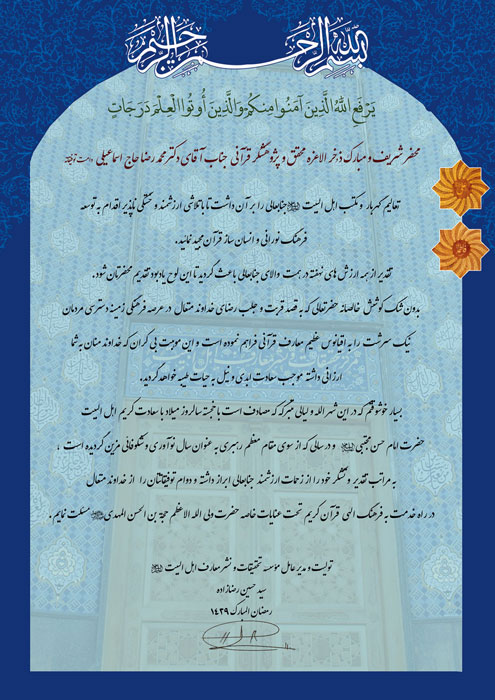 بسم الله الرحمن الرحیم
یَرْفَعِ اللهُ الَّذِینَ آمَنُوا مِنکُمْ وَالَّذِینَ أُوتُوا الْعِلْمَ دَرَجَاتٍ
محضر شریف و مبارک ذخر الاعزه محقق و پژوهشگر قرآنی جناب آقای دکتر محمد رضا حاج اسماعیلی دامت توفیقاته
تعالیم گهربار مکتب اهل البیت جنابعالی را بر آن داشت تا با تلاشی ارزشمند و خستگی ناپذیر اقدام به توسعه
فرهنگ نورانی و انسان ساز قرآن مجید نمائید.
تقدیر از همه ارزش های نهفته در همت والای جنابعالی باعث گردید تا این لوح یادبود تقدیم محضرتان شود.
بدون شک کوشش خالصانه حضرتعالی که به قصد قربت و جلب رضای خداوند متعال در عرصه فرهنگی زمینه دسترسی مردمان
نیک سرشت را به اقیانوس عظیم معارف قرآنی فراهم نموده است و این موهبت بی کران که خداوند منان به شما
ارزانی داشته موجب سعادت ابدی و نیل به حیات طیبه خواهد گردید.
بسیار خوشوقتم که در این شهر الله و لیالی متبرکه که مصادف است با خجسته سالروز میلاد با سعادت کریم اهل البیت
حضرت امام حسن مجتبی و در سالی که از سوی مقام معظم رهبری به عنوان سال نوآوری و شکوفائی مزین گردیده است ؛
به مراتب تقدیر و تشکر خود را از زحمات ارزشمند جنابعالی ابراز داشته و دوام توفیقاتتان را از خداوند متعال
در راه خدمت به فرهنگ الهی قرآن کریم تحت عنایات خاصه حضرت ولی الله الاعظم حجة بن الحسن المهدی مسئلت نمایم .
تولیت و مدیر عامل مؤسسه تحقیقات و نشر معارف اهل البیت
سید حسین رضازاده
رمضان المبارک ۱۴۲۹